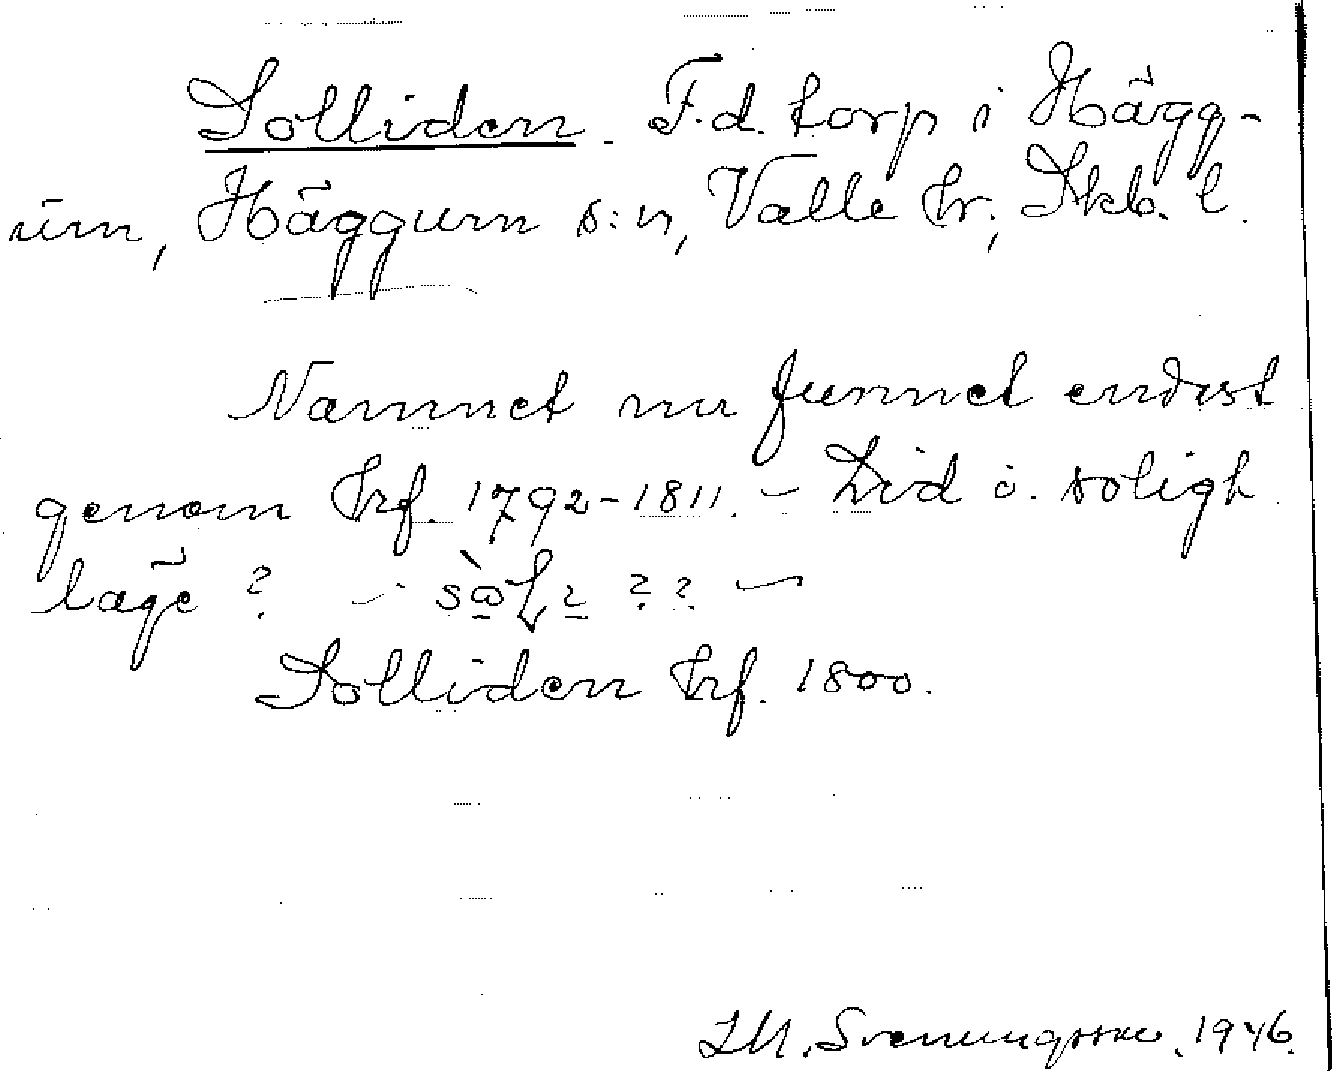 Solliden. F.d. torp i Hägg-
um, Häggum s:n, Valle hr, Skb. l.
Namnet nu funnet endast
genom hrf. 1792-1811. - Lid i soligt
läge? - ?? -
Solliden hrf. 1800.
Svenungsson. 1946.